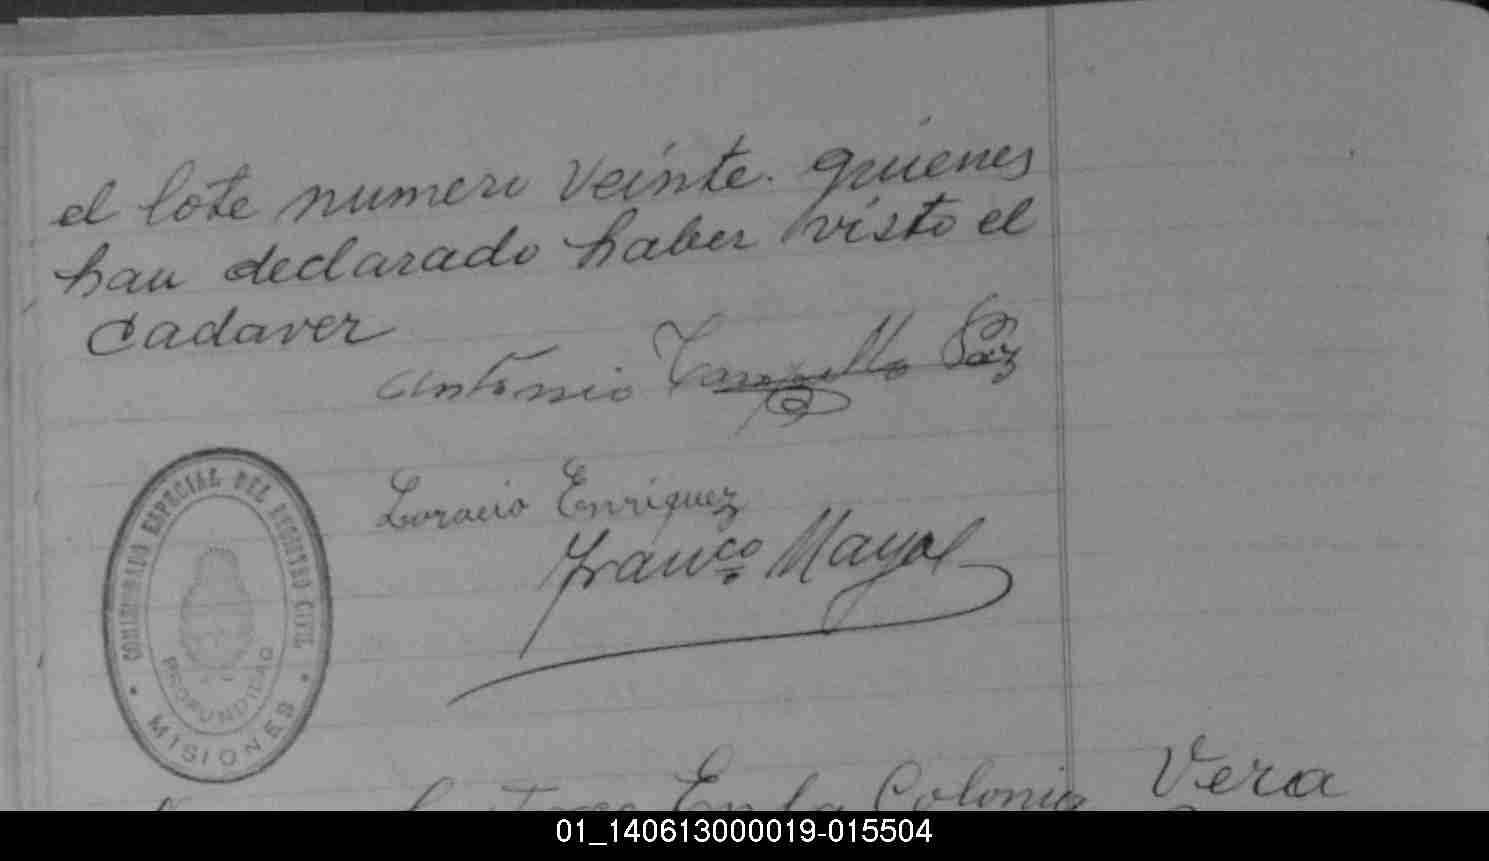 el lote numero veinte. quienes
han declarado haber visto el
cadaver
Antonio Paz
Enriquez
Franco. Mayol
COMISARIADO ESPECIAL DEL REGISTRO CIVIL
PROFUNDIDAD
MISIONES
En la Colonia Vera
01_140613000019-015504